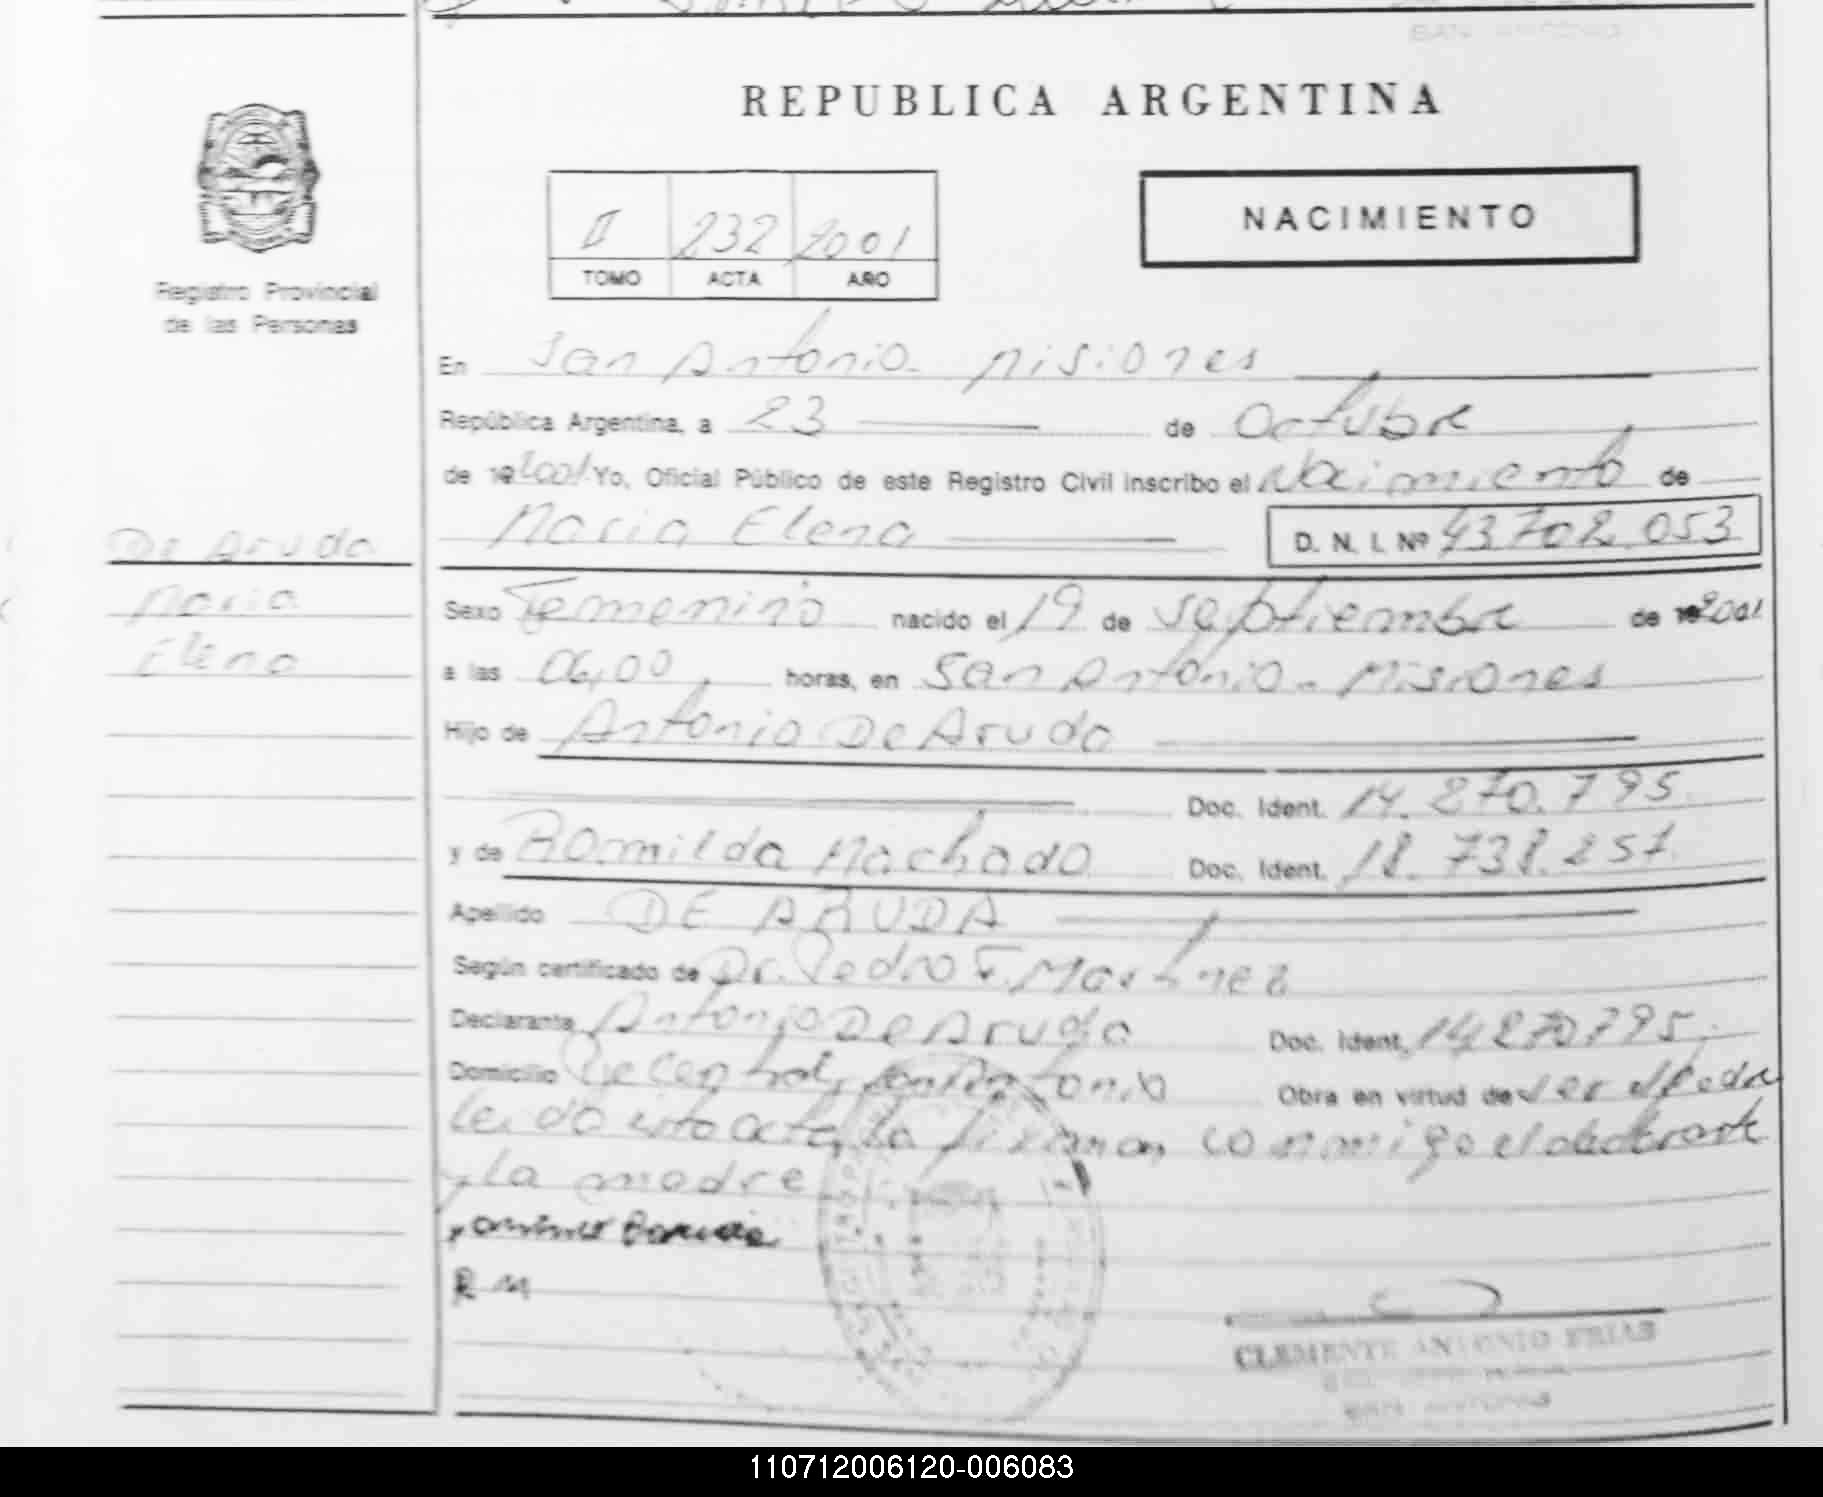 REPUBLICA ARGENTINA
NACIMIENTO
II 232 2001
TOMO ACTA AÑO
Registro Provincial
de las Personas
En San Antonio - Misiones
República Argentina, a 23 de Octubre
de 19 2001 Yo, Oficial Público de este Registro Civil inscribo el Nacimiento de
Maria Elena D. N. I. Nº 43.702.053
De Aruda
Maria
Elena
Sexo Femenino nacido el 19 de Septiembre de 19 2001
a las 06,00 horas, en San Antonio - Misiones
Hijo de Antonio De Aruda
Doc. Ident. 14.270.795
y de Romilda Machado Doc. Ident. 18.738.257
Apellido DE ARUDA
Según certificado de Dr. Pedro F. Martinez
Declarante Antonio De Aruda Doc. Ident. 14.270.795
Domicilio San Antonio Obra en virtud de ser el Padre
Leida esta acta, la firman conmigo el declarante
y La madre
R M
CLEMENTE ANTONIO FRIAS
SAN ANTONIO
110712006120-006083